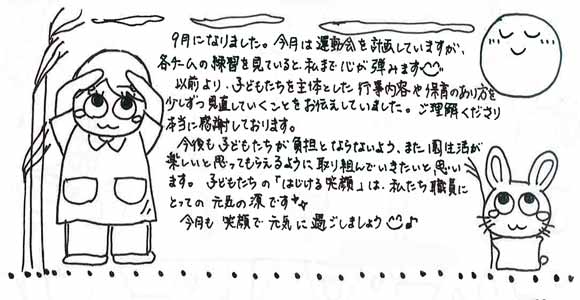 9月になりました。今月は運動会を計画していますが、
各チームの練習を見ていると、私まで心が弾みます
以前より、子どもたちを主体とした行事内容や保育のあり方を
少しずつ見直していくことをお伝えしていました。ご理解くださり
本当に感謝しております。
今後も子どもたちが負担とならないよう、また園生活が
楽しいと思ってもらえるように取り組んでいきたいと思い
ます。子どもたちの「はじける笑顔」は、私たち職員に
とっての元気の源です
今月も笑顔で元気に過ごしましょう